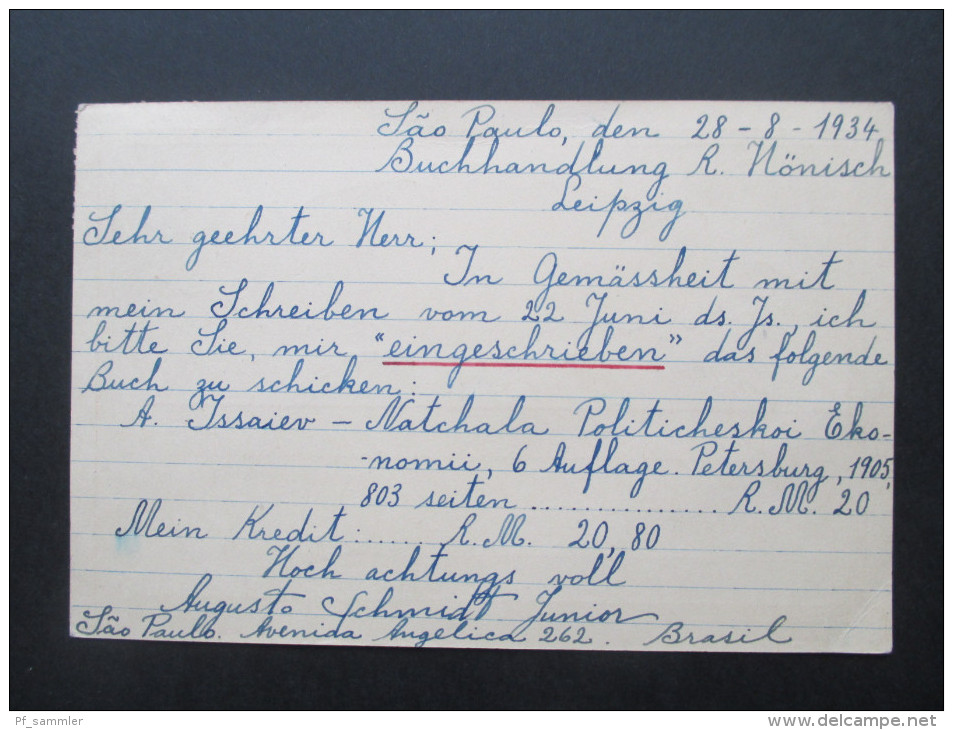 São Paulo, den 28-8-1934
Buchhandlung R. Hönisch
Leipzig
Sehr geehrter Herr;
In Gemässheit mit
mein Schreiben vom 22 Juni ds. Js., ich
bitte Sie, mir "eingeschrieben" das folgende
Buch zu schicken:
A. Issaiev – Natchala Politicheskoi Eko-
-nomii, 6 Auflage. Petersburg, 1905,
803 seiten ................ R.M. 20
Mein Kredit:...... R.M. 20,80
Hoch achtungs voll
Augusto Schmidt Junior
São Paulo. Avenida Angelica 262. Brasil
Pf_sammler
www.delcampe.net